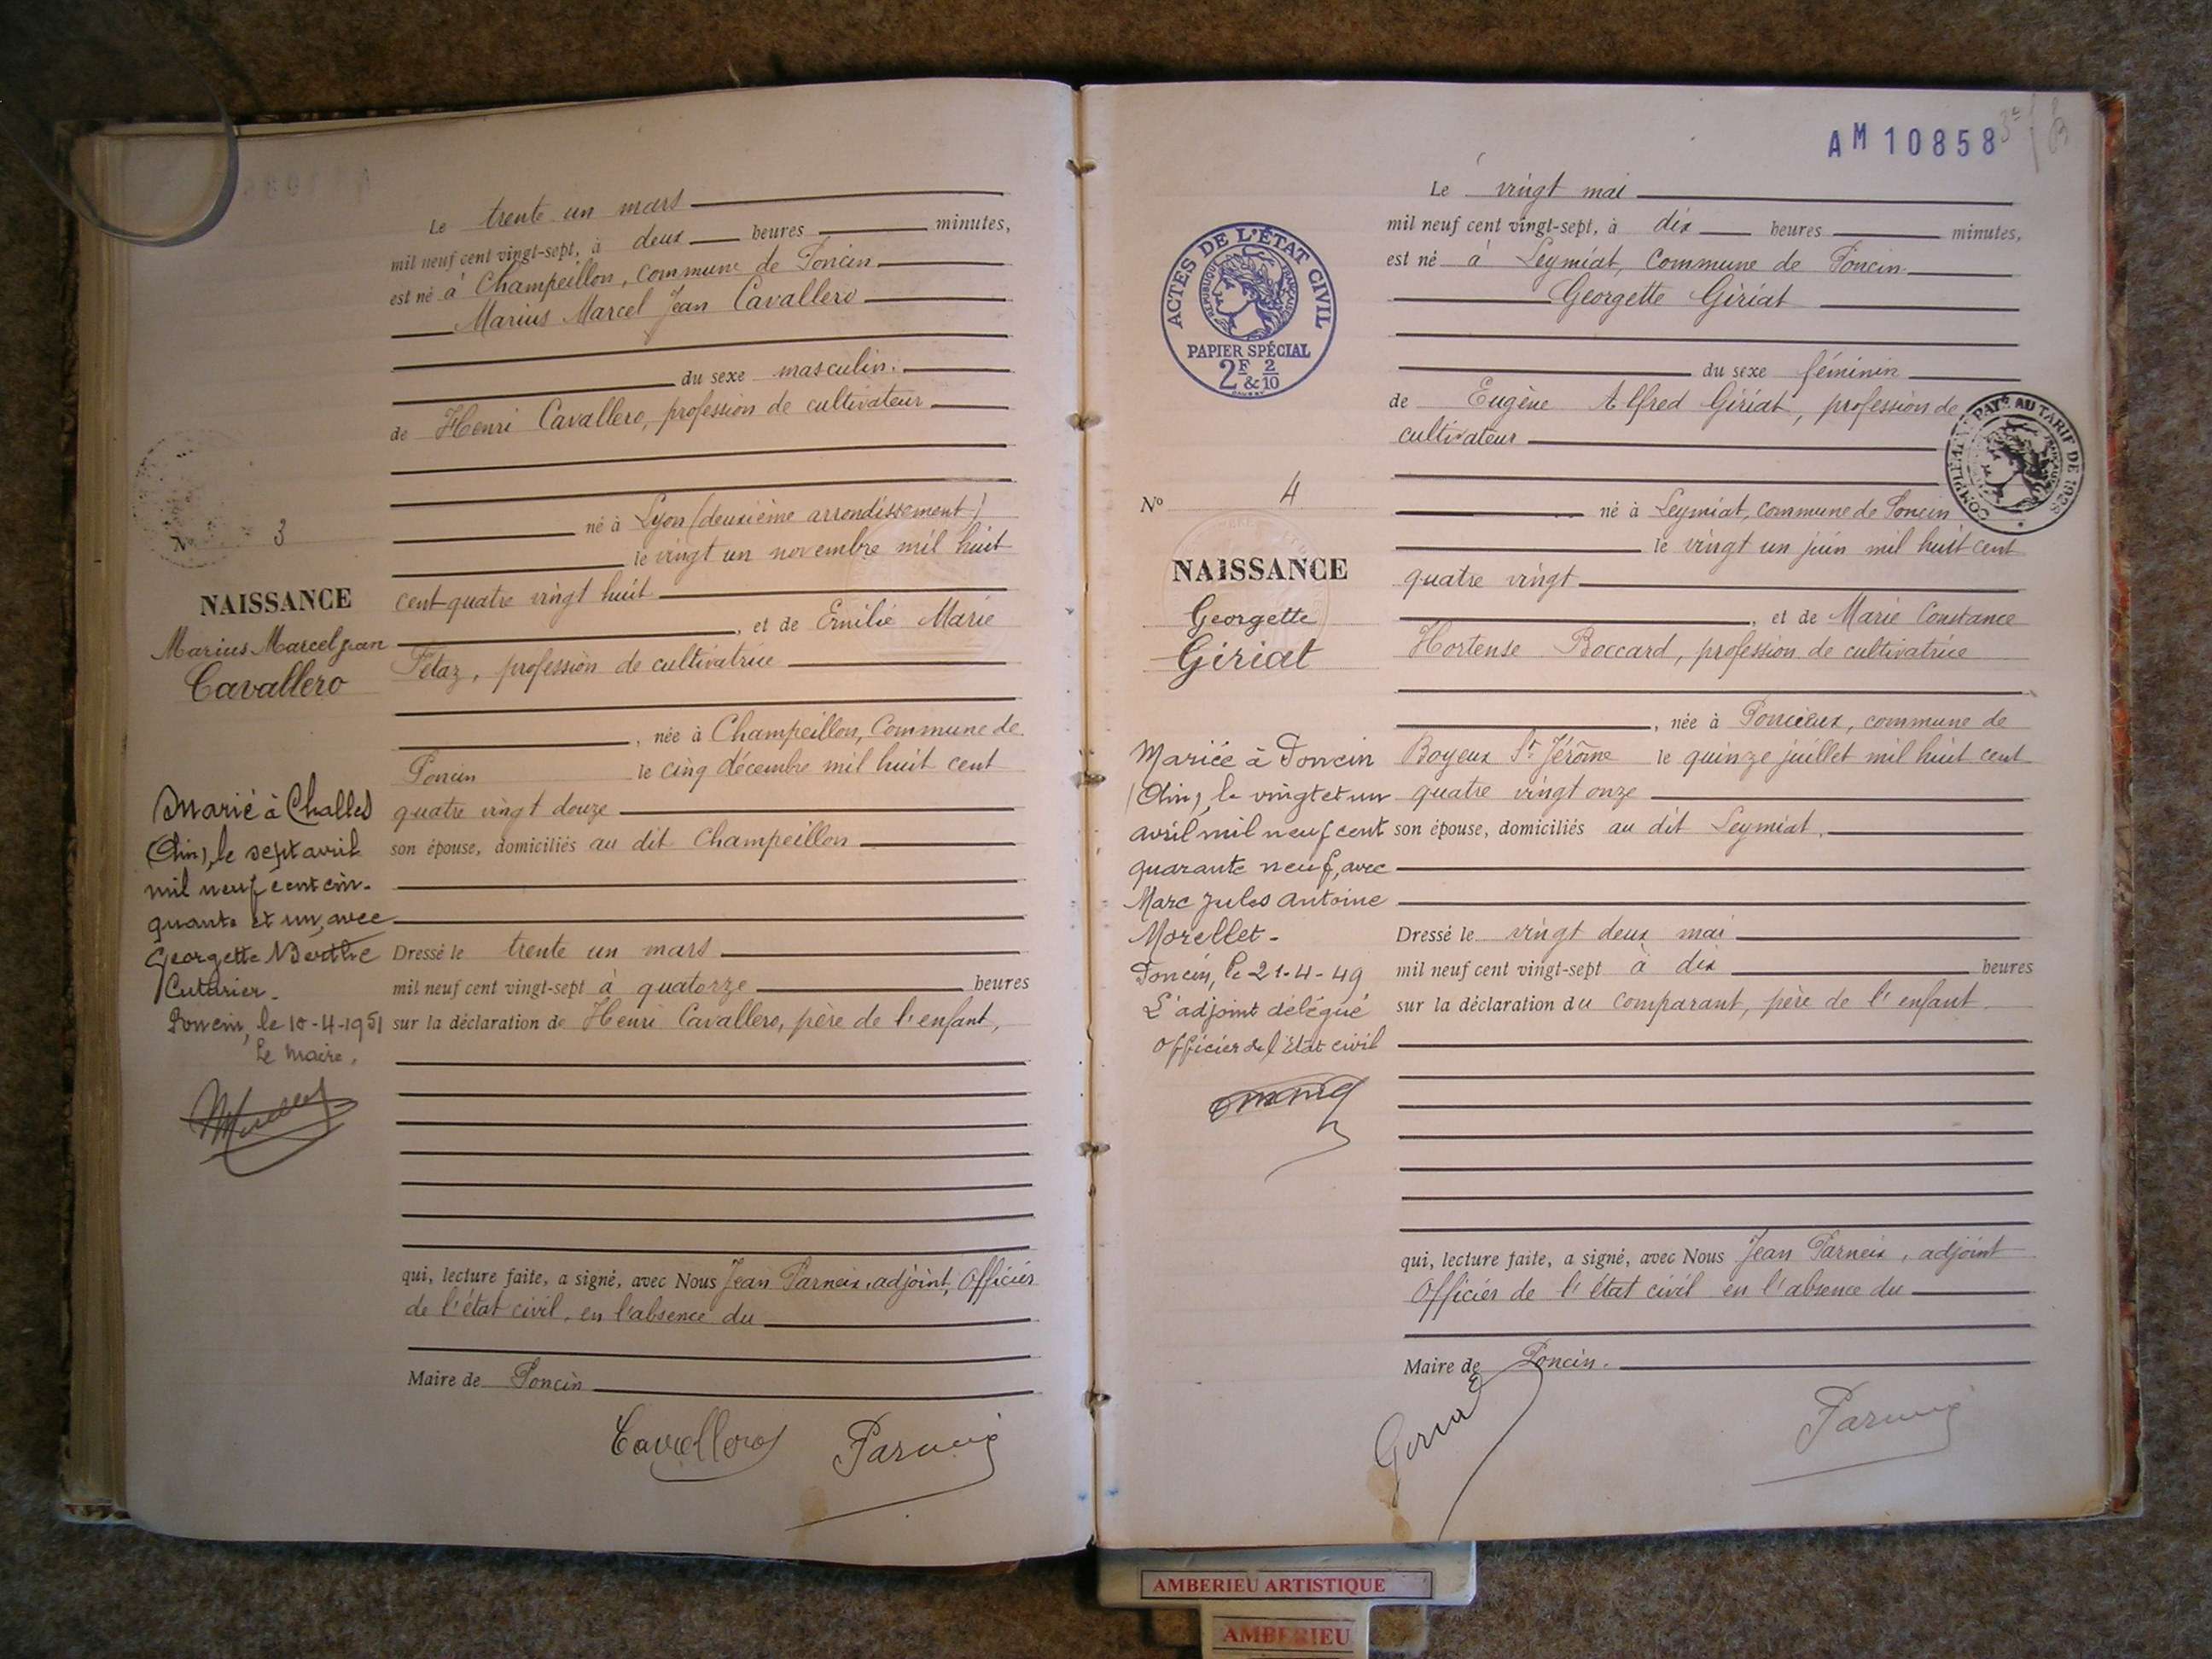 Le trente un mars
mil neuf cent vingt-sept, à deux heures minutes,
est né à Champeillon, commune de Poncin
Marius Marcel Jean Cavallero
du sexe masculin.
de Henri Cavallero, profession de cultivateur
né à Lyon (deuxième arrondissement)
le vingt un novembre mil huit
cent quatre vingt huit
, et de Emilie Marie
Fétaz, profession de cultivatrice
, née à Champeillon, Commune de
Poncin le cinq décembre mil huit cent
quatre vingt douze
son épouse, domiciliés au dit Champeillon
Dressé le trente un mars
mil neuf cent vingt-sept à quatorze heures
sur la déclaration de Henri Cavallero, père de l'enfant,
qui, lecture faite, a signé, avec Nous Jean Parneix, adjoint, Officier
de l'état civil, en l'absence du
Maire de Poncin
Cavallero Parneix
No 3
NAISSANCE
Marius Marcel Jean
Cavallero
Marié à Challes
(Ain), le sept avril
mil neuf cent cin-
quante et un, avec
Georgette Berthe
Cuturier.
Poncin, le 10-4-1951
Le Maire,
AM 10858
Le vingt mai
mil neuf cent vingt-sept, à dix heures minutes,
est né à Leymiat, Commune de Poncin
Georgette Giriat
du sexe féminin
de Eugène Alfred Giriat, profession de
cultivateur
né à Leymiat, commune de Poncin
le vingt un juin mil huit cent
quatre vingt
, et de Marie Constance
Hortense Boccard, profession de cultivatrice
, née à Poncieux, commune de
Boyeux St Jérôme le quinze juillet mil huit cent
quatre vingt onze
son épouse, domiciliés au dit Leymiat.
Dressé le vingt deux mai
mil neuf cent vingt-sept à dix heures
sur la déclaration du comparant, père de l'enfant.
qui, lecture faite, a signé, avec Nous Jean Parneix, adjoint
Officier de l'état civil en l'absence du
Maire de Poncin.
Parneix
ACTES DE L'ÉTAT CIVIL
RÉPUBLIQUE FRANÇAISE
PAPIER SPÉCIAL
2F 2
&10
COMPLÉMENT PAYÉ AU TARIF DE
No 4
NAISSANCE
Georgette
Giriat
Mariée à Poncin
(Ain), le vingt et un
avril mil neuf cent
quarante neuf, avec
Marc Jules Antoine
Morellet-
Poncin, le 21-4-49
L'adjoint délégué
Officier de l'état civil
AMBERIEU ARTISTIQUE
AMBERIEU